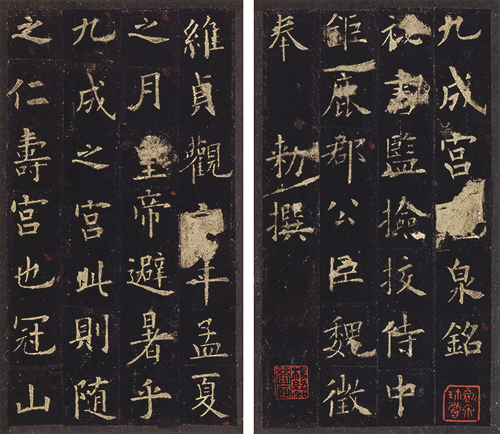 九成宮泉銘
祕書監檢挍侍中
鉅鹿郡公臣魏徵
奉 勅撰
維貞觀年孟夏
之月皇帝避暑乎
九成之宮此則隨
之仁壽宮也冠山